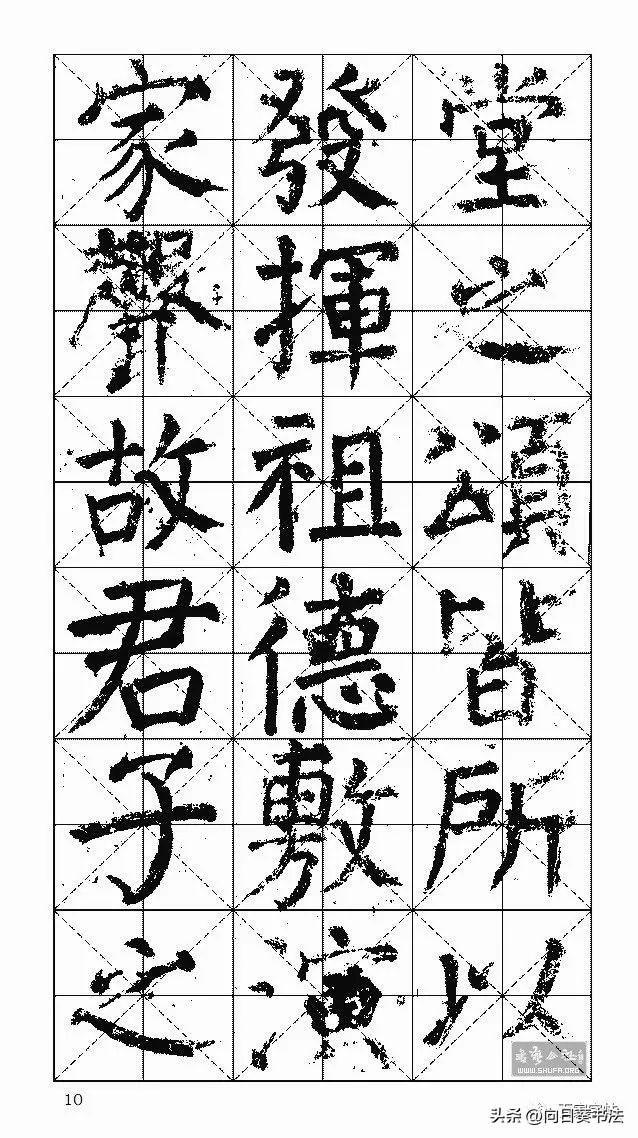 堂之頌皆所以
發揮祖德敷演
家聲故君子之
10
WWW.SHUFA.ORG
头条 @向日葵书法